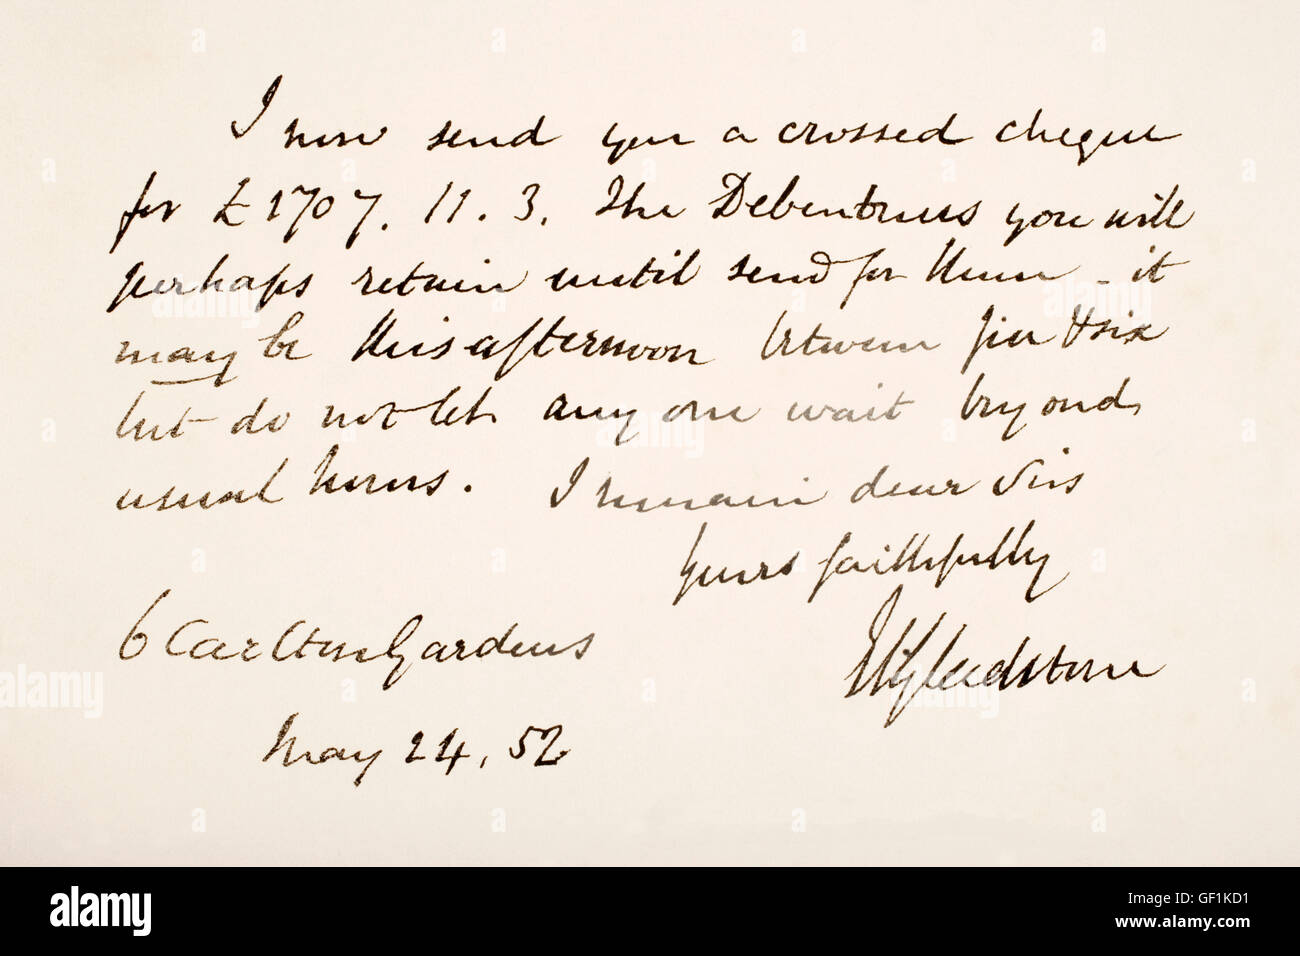 I now send you a crossed cheque
for £1707. 11. 3. The Debentures you will
perhaps retain until send for them - it
may be this afternoon between five & six
but do not let any one wait beyond
usual hours. I remain dear Sirs
Yours faithfully
WGladstone
6 Carlton Gardens
May 24, 52
alamy
Image ID: GF1KD1
www.alamy.com